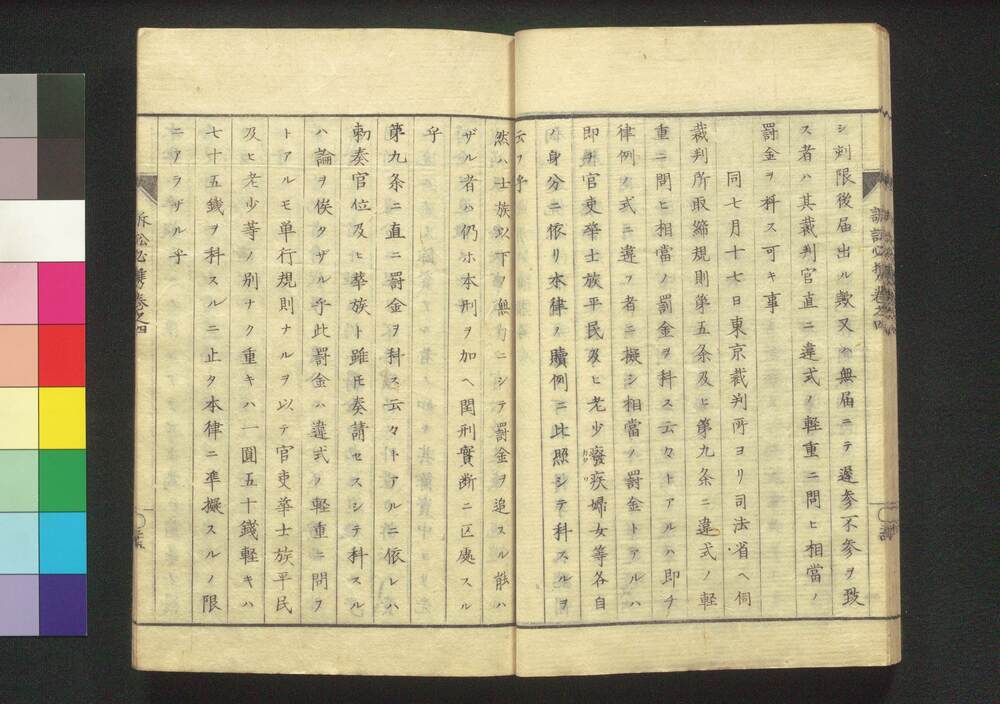 シ刺限後届出ル歟又ハ無届ニテ遲参不参ヲ致
ス者ハ其裁判官直ニ違式ノ軽重ニ問ヒ相當ノ
罰金ヲ科ス可キ事
同七月十七日東京裁判所ヨリ司法省ヘ伺
裁判所取締規則第五条及ヒ第九条ニ違式ノ軽
重ニ問ヒ相當ノ罰金ヲ科ス云々トアルハ即チ
律例ノ式ニ違フ者ニ擬シ相當ノ罰金トアルハ
即チ官吏華士族平民及ヒ老少癈疾婦女等各自
ノ身分ニ依リ本律ノ贖例ニ比照シテ科スルヲ
云フ乎
然ハ士族以下ノ無力ニシテ罰金ヲ追スル能ハ
ザル者ハ仍ホ本刑ヲ加ヘ閏刑實断ニ区處スル
乎
第九条ニ直ニ罰金ヲ科ス云々トアルニ依レハ
勅奏官位及ヒ華族ト雖モ奏請セスシテ科スル
ハ論ヲ俟タザル乎此罰金ハ違式ノ軽重ニ問フ
トアルモ単行規則ナルヲ以テ官吏華士族平民
及ヒ老少等ノ別ナク重キハ一圓五十錢軽キハ
七十五錢ヲ科スルニ止タ本律ニ準擬スルノ限
ニアラザル乎
訴訟必携巻之四